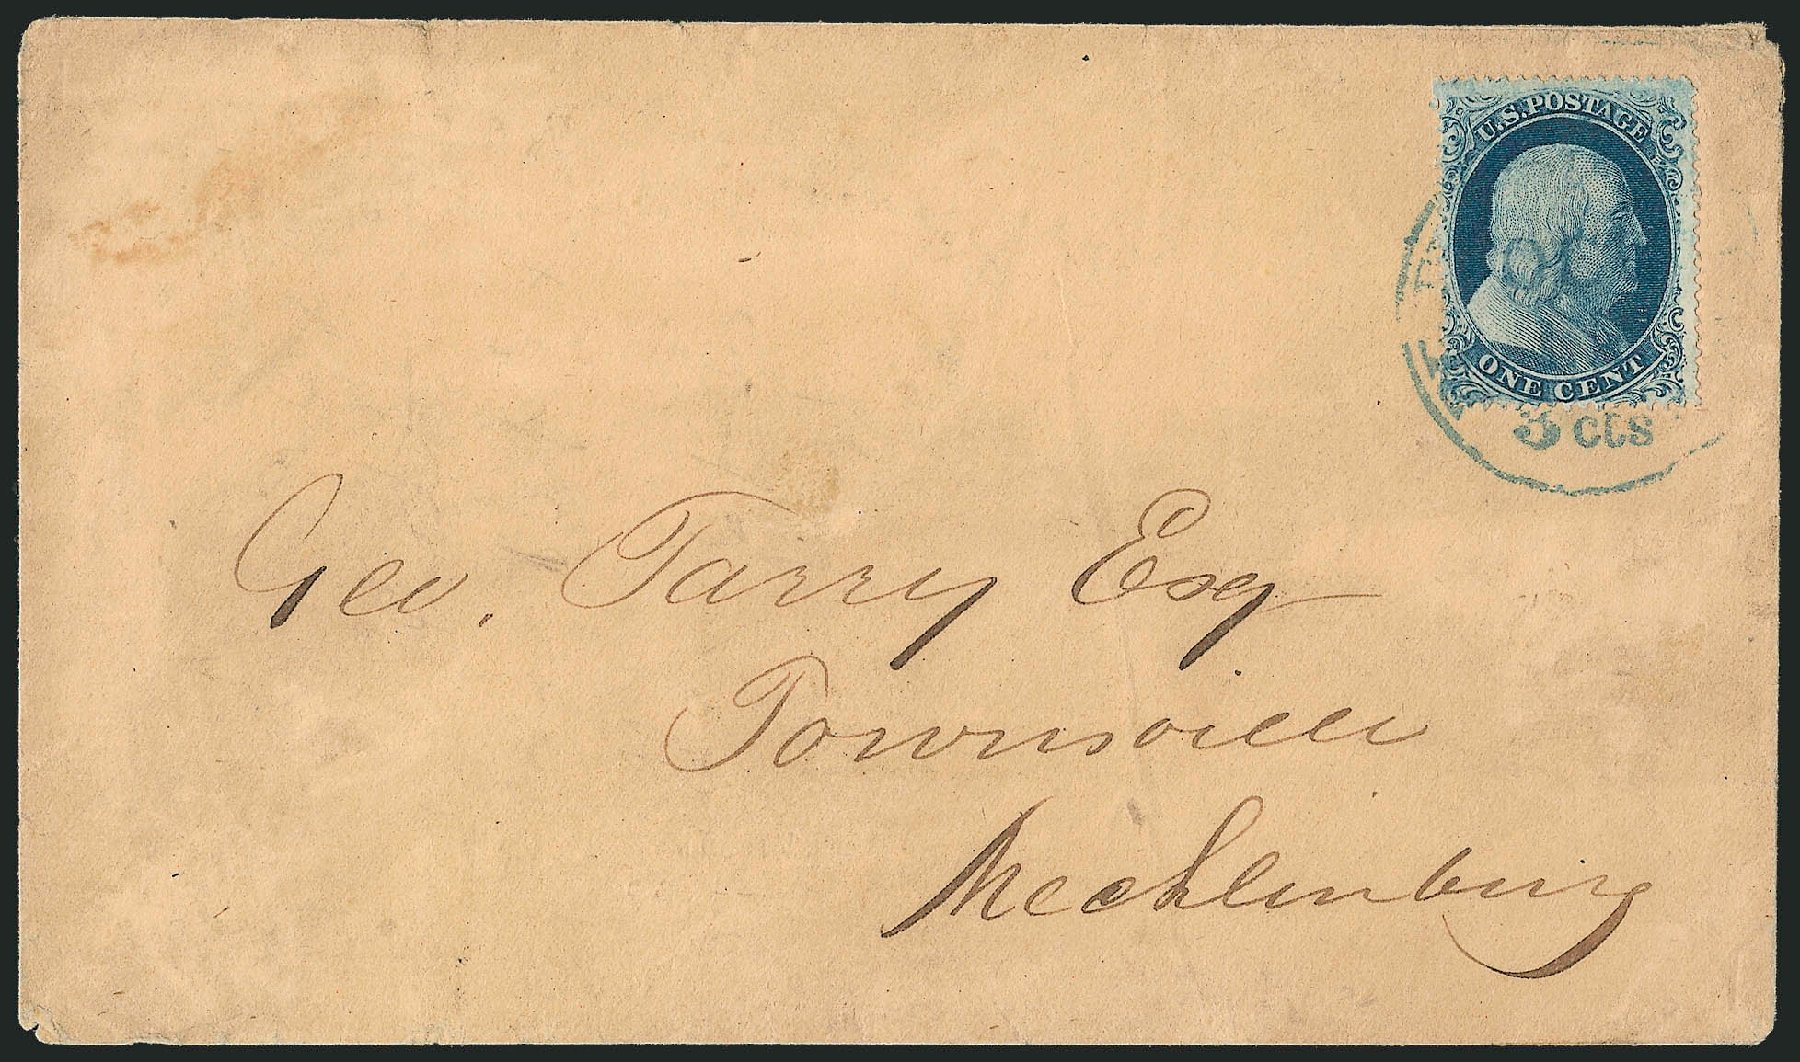 U.S. POSTAGE
ONE CENT
3 cts
Geo. Tarry Esq
Townsville
Mecklenburg